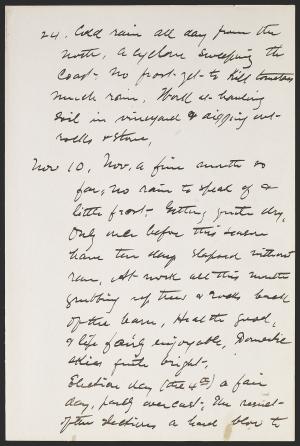 24. Cold rain all day from the
north, a cyclone sweeping the
Coast. No frost yet to kill tomatoes
much rain. Work at hauling
soil in vineyard & digging out
rocks & stone,
Nov 10, Nov, a fine month so
far, no rain to speak of &
little frost. Getting quite dry,
Only once before this season
have ten days elapsed without
rain, At work all this month
grubbing up trees & rocks back
of the barn, Health good,
& life fairly enjoyable, Domestic
skies quite bright.
Election day (the 4th) a fair
day, partly overcast, The result
of the elections a hard blow to